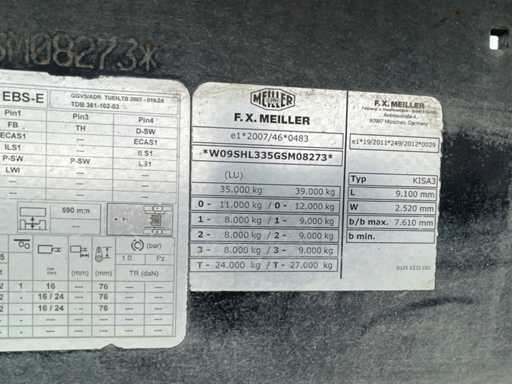 SM08273*
EBS-E
GGVS/ADR: TUEH.TB 2007 - 019.00
TDB 361-102-03
Pin1 Pin3 Pin4
FB TH D-SW
ECAS1 ECAS1
ILS1 ILS1
P-SW P-SW LS1
LWI
590 mm
(mm) (mm) (bar)
1.0 Pz
TR (daN)
2 1 16 - 76 -
2 - 16 / 24 - 76 -
2 - 16 / 24 - 76 -
MEILLER
F.X. MEILLER
e1*2007/46*0483
*W09SHL335GSM08273*
(LU)
35.000 kg 39.000 kg
0 - 11.000 kg / 0 - 12.000 kg
1 - 8.000 kg / 1 - 9.000 kg
2 - 8.000 kg / 2 - 9.000 kg
3 - 8.000 kg / 3 - 9.000 kg
T - 24.000 kg / T - 27.000 kg
F.X. MEILLER
80997 München, Germany
e1*19/2011*249/2012*0029
Typ KISA3
L 9.100 mm
W 2.520 mm
b/b max. 7.610 mm
b min.